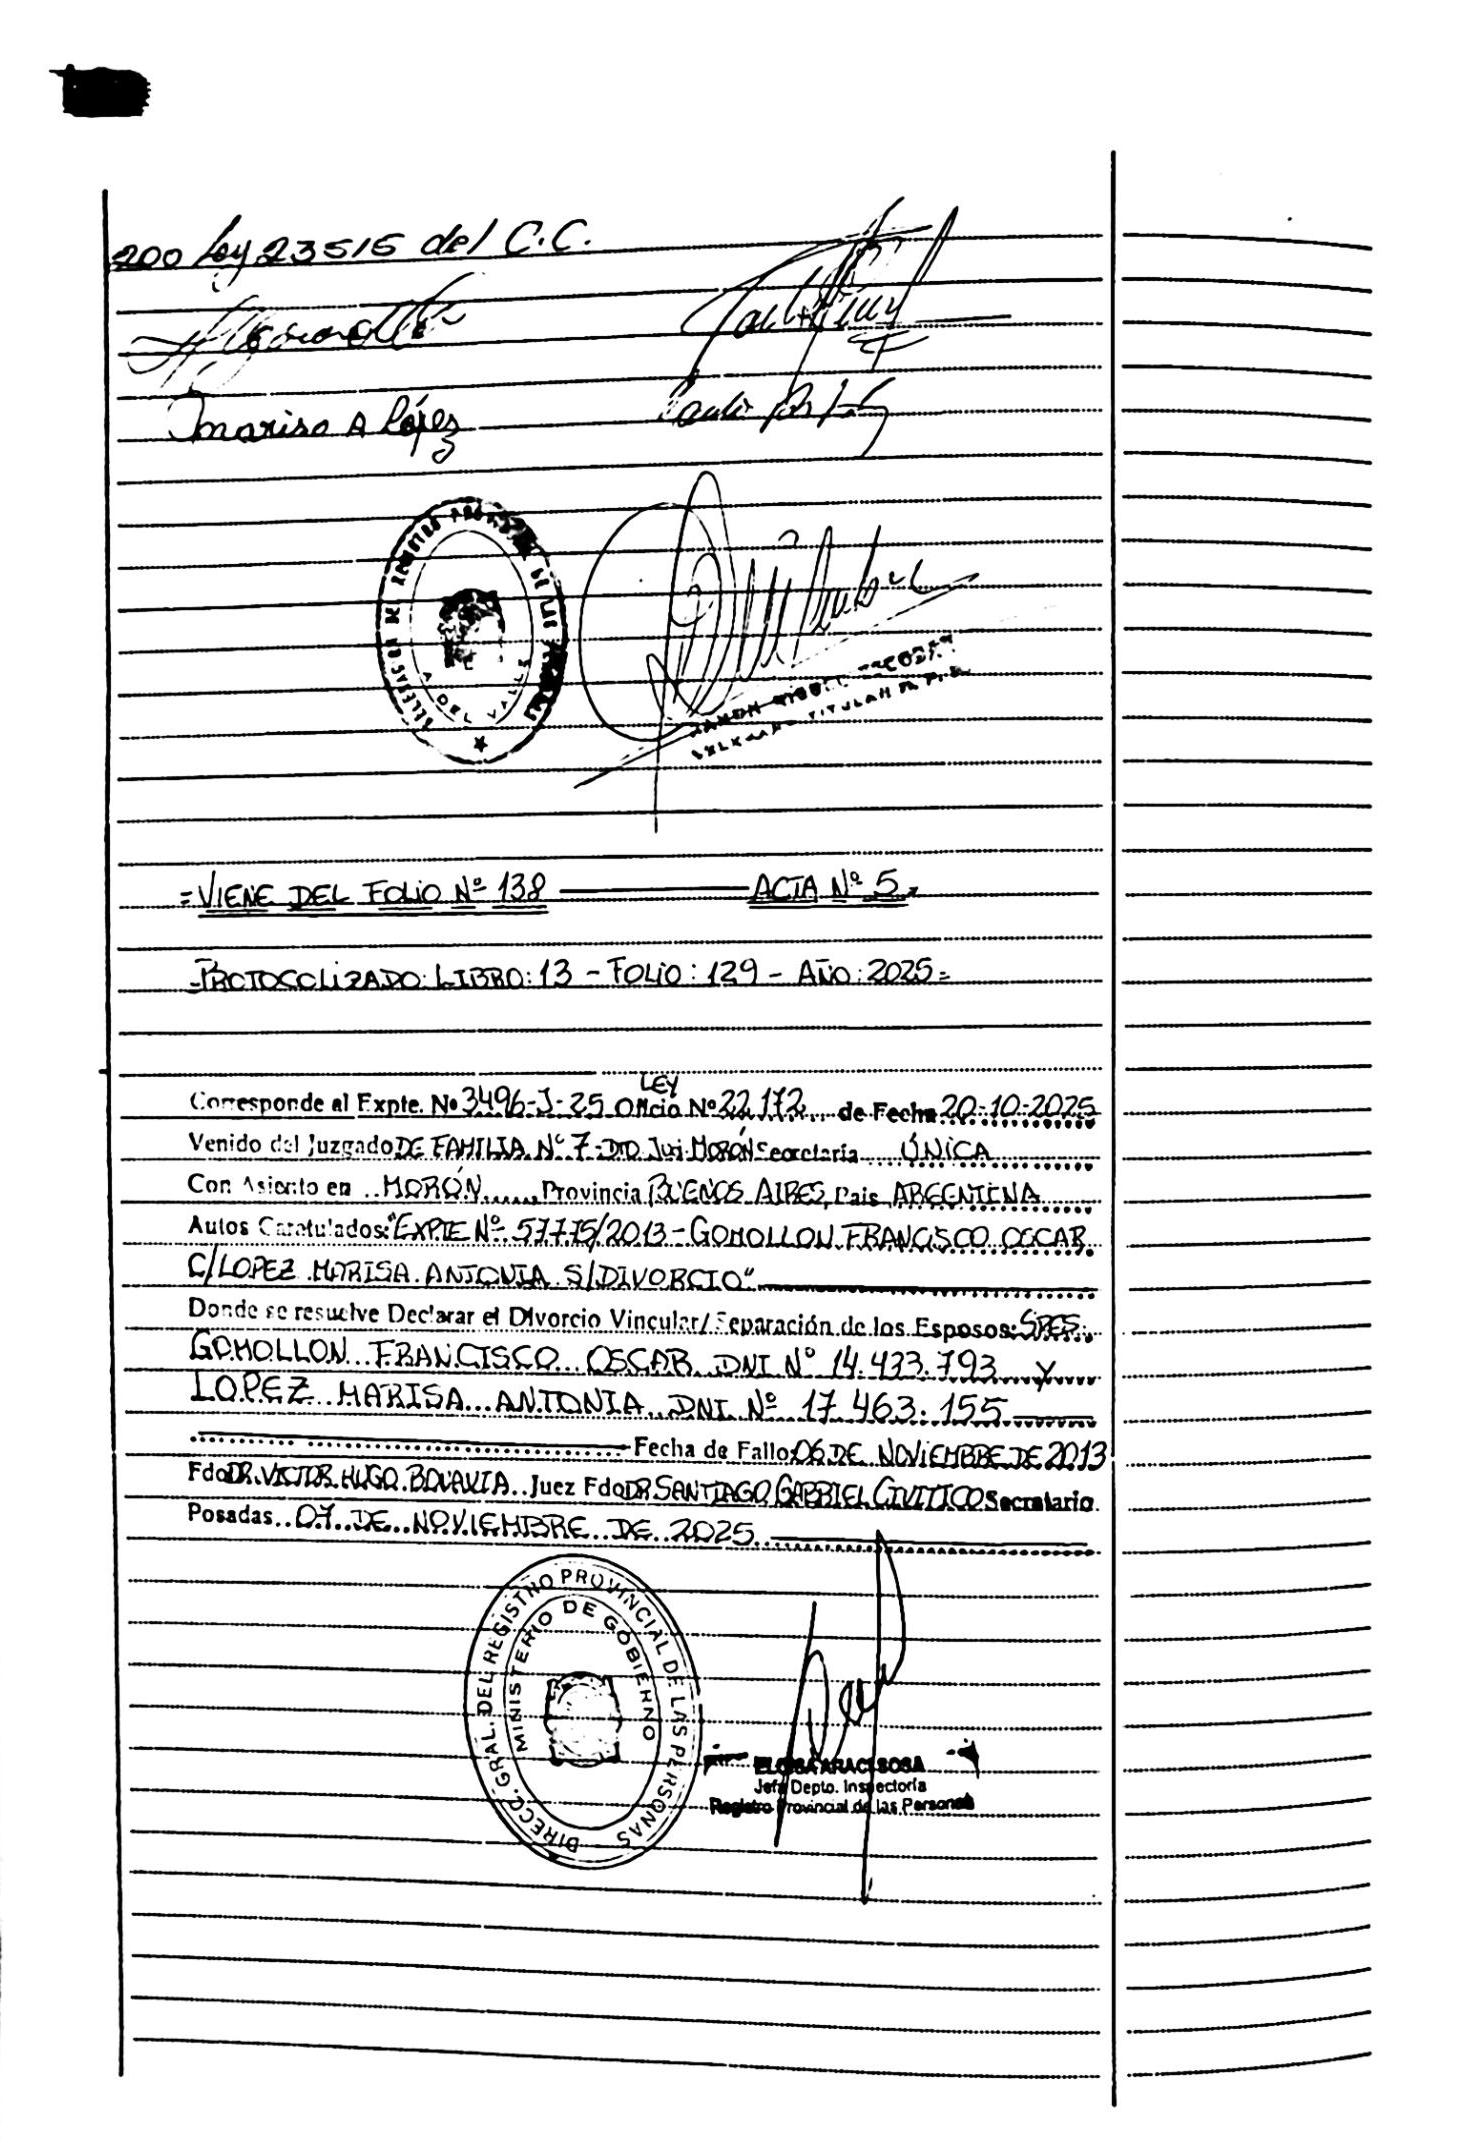 200 Ley 23515 del C.C.
Marisa A López
DELEGACION DEL REGISTRO PROVINCIAL DE LAS PERSONAS
A DEL VALLE
RAMON MIGUEL ESCOBAR
TITULAR
=VIENE DEL FOLIO Nº 138 ACTA Nº 5=
=PROTOCOLIZADO: LIBRO: 13 - FOLIO: 129 - AÑO: 2025=
LEY
Corresponde al Expte. Nº 3496-J-25 Oficio Nº 22.172 de Fecha 20-10-2025
Venido del Juzgado DE FAMILIA Nº 7-DTO Jui. MORÓN Secretaría ÚNICA
Con Asiento en MORÓN Provincia BUENOS AIRES, Pais ARGENTINA
Autos Caratulados: "EXPTE Nº 57775/2013 - GOMOLLON FRANCISCO OSCAR
C/LOPEZ MARISA ANTONIA S/DIVORCIO"
Donde se resuelve Declarar el Divorcio Vincular/Separación de los Esposos: SRES.
GOMOLLON FRANCISCO OSCAR DNI Nº 14.433.793 Y
LOPEZ MARISA ANTONIA DNI Nº 17.463.155
Fecha de Fallo: 06 DE NOVIEMBRE DE 2013
Fdo DR. VICTOR HUGO BONAVIA Juez Fdo DR SANTIAGO GABRIEL CIVITICO Secretario
Posadas 07 DE NOVIEMBRE DE 2025
DIRECC. GRAL. DEL REGISTRO PROVINCIAL DE LAS PERSONAS
MINISTERIO DE GOBIERNO
ELOISA ARACI SOSA
Jefa Depto. Inspectoría
Registro Provincial de las Personas